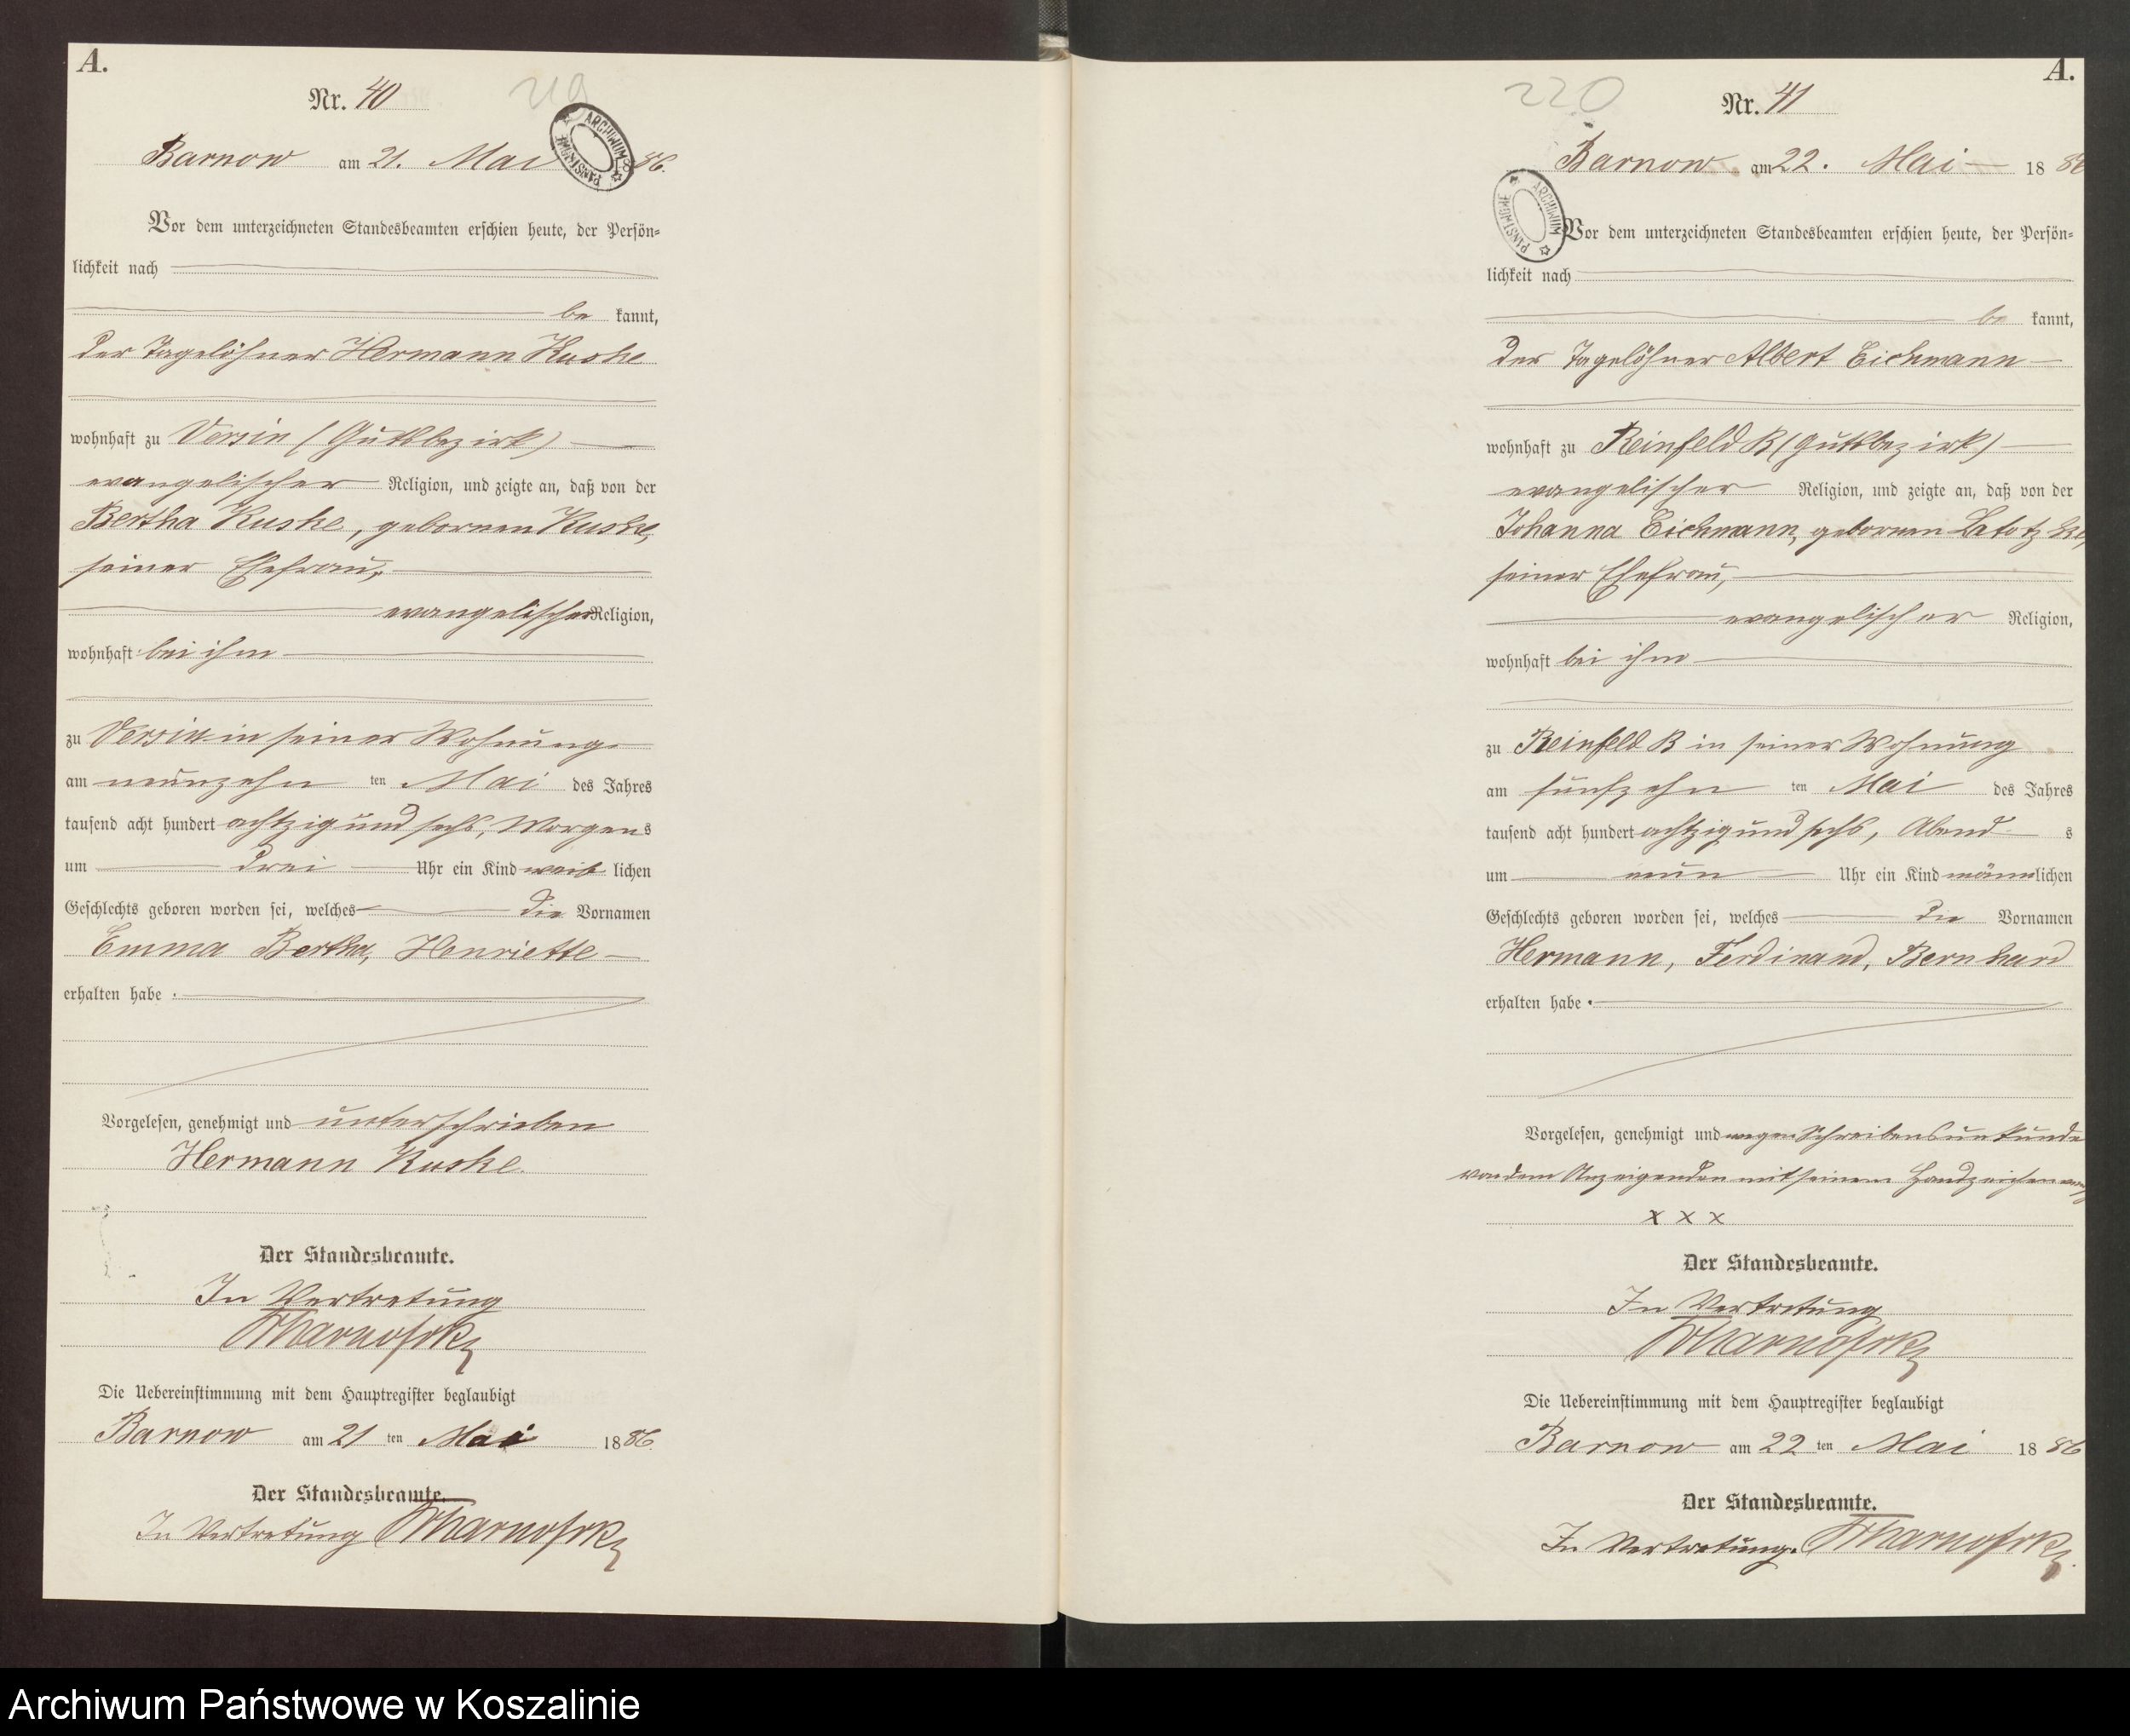 A.
Nr. 40
219
ARCHIWUM PAŃSTWOWE
Barnow am 21. Mai 1886.
Vor dem unterzeichneten Standesbeamten erschien heute, der Persön-
lichkeit nach
be kannt,
der Tagelöhner Hermann Kuske
wohnhaft zu Versin (Gutsbezirk)
evangelischer Religion, und zeigte an, daß von der
Bertha Kuske, gebornen Kuske,
seiner Ehefrau,
evangelischer Religion,
wohnhaft bei ihm
zu Versin in seiner Wohnung
am neunzehn ten Mai des Jahres
tausend acht hundert achtzig und sechs, Morgens
um drei Uhr ein Kind weib lichen
Geschlechts geboren worden sei, welches die Vornamen
Emma Bertha, Henriette
erhalten habe.
Vorgelesen, genehmigt und unterschrieben
Hermann Kuske.
Der Standesbeamte.
In Vertretung
Die Uebereinstimmung mit dem Hauptregister beglaubigt
Barnow am 21 ten Mai 1886.
Der Standesbeamte.
In Vertretung
A.
220
Nr. 41
Barnow am 22. Mai 1886
ARCHIWUM PAŃSTWOWE
Vor dem unterzeichneten Standesbeamten erschien heute, der Persön-
lichkeit nach
be kannt,
der Tagelöhner Albert Eichmann
wohnhaft zu Reinfeld B (Gutsbezirk)
evangelischer Religion, und zeigte an, daß von der
Johanna Eichmann, gebornen Latotzke,
seiner Ehefrau,
evangelischer Religion,
wohnhaft bei ihm
zu Reinfeld B in seiner Wohnung
am fünfzehn ten Mai des Jahres
tausend acht hundert achtzig und sechs, Abend s
um neun Uhr ein Kind männlichen
Geschlechts geboren worden sei, welches die Vornamen
Hermann, Ferdinand, Bernhard
erhalten habe.
Vorgelesen, genehmigt und wegen Schreibensunkunde
von dem Anzeigenden mit seinem Handzeichen
x x x
Der Standesbeamte.
In Vertretung
Die Uebereinstimmung mit dem Hauptregister beglaubigt
Barnow am 22 ten Mai 1886
Der Standesbeamte.
In Vertretung.
Archiwum Państwowe w Koszalinie